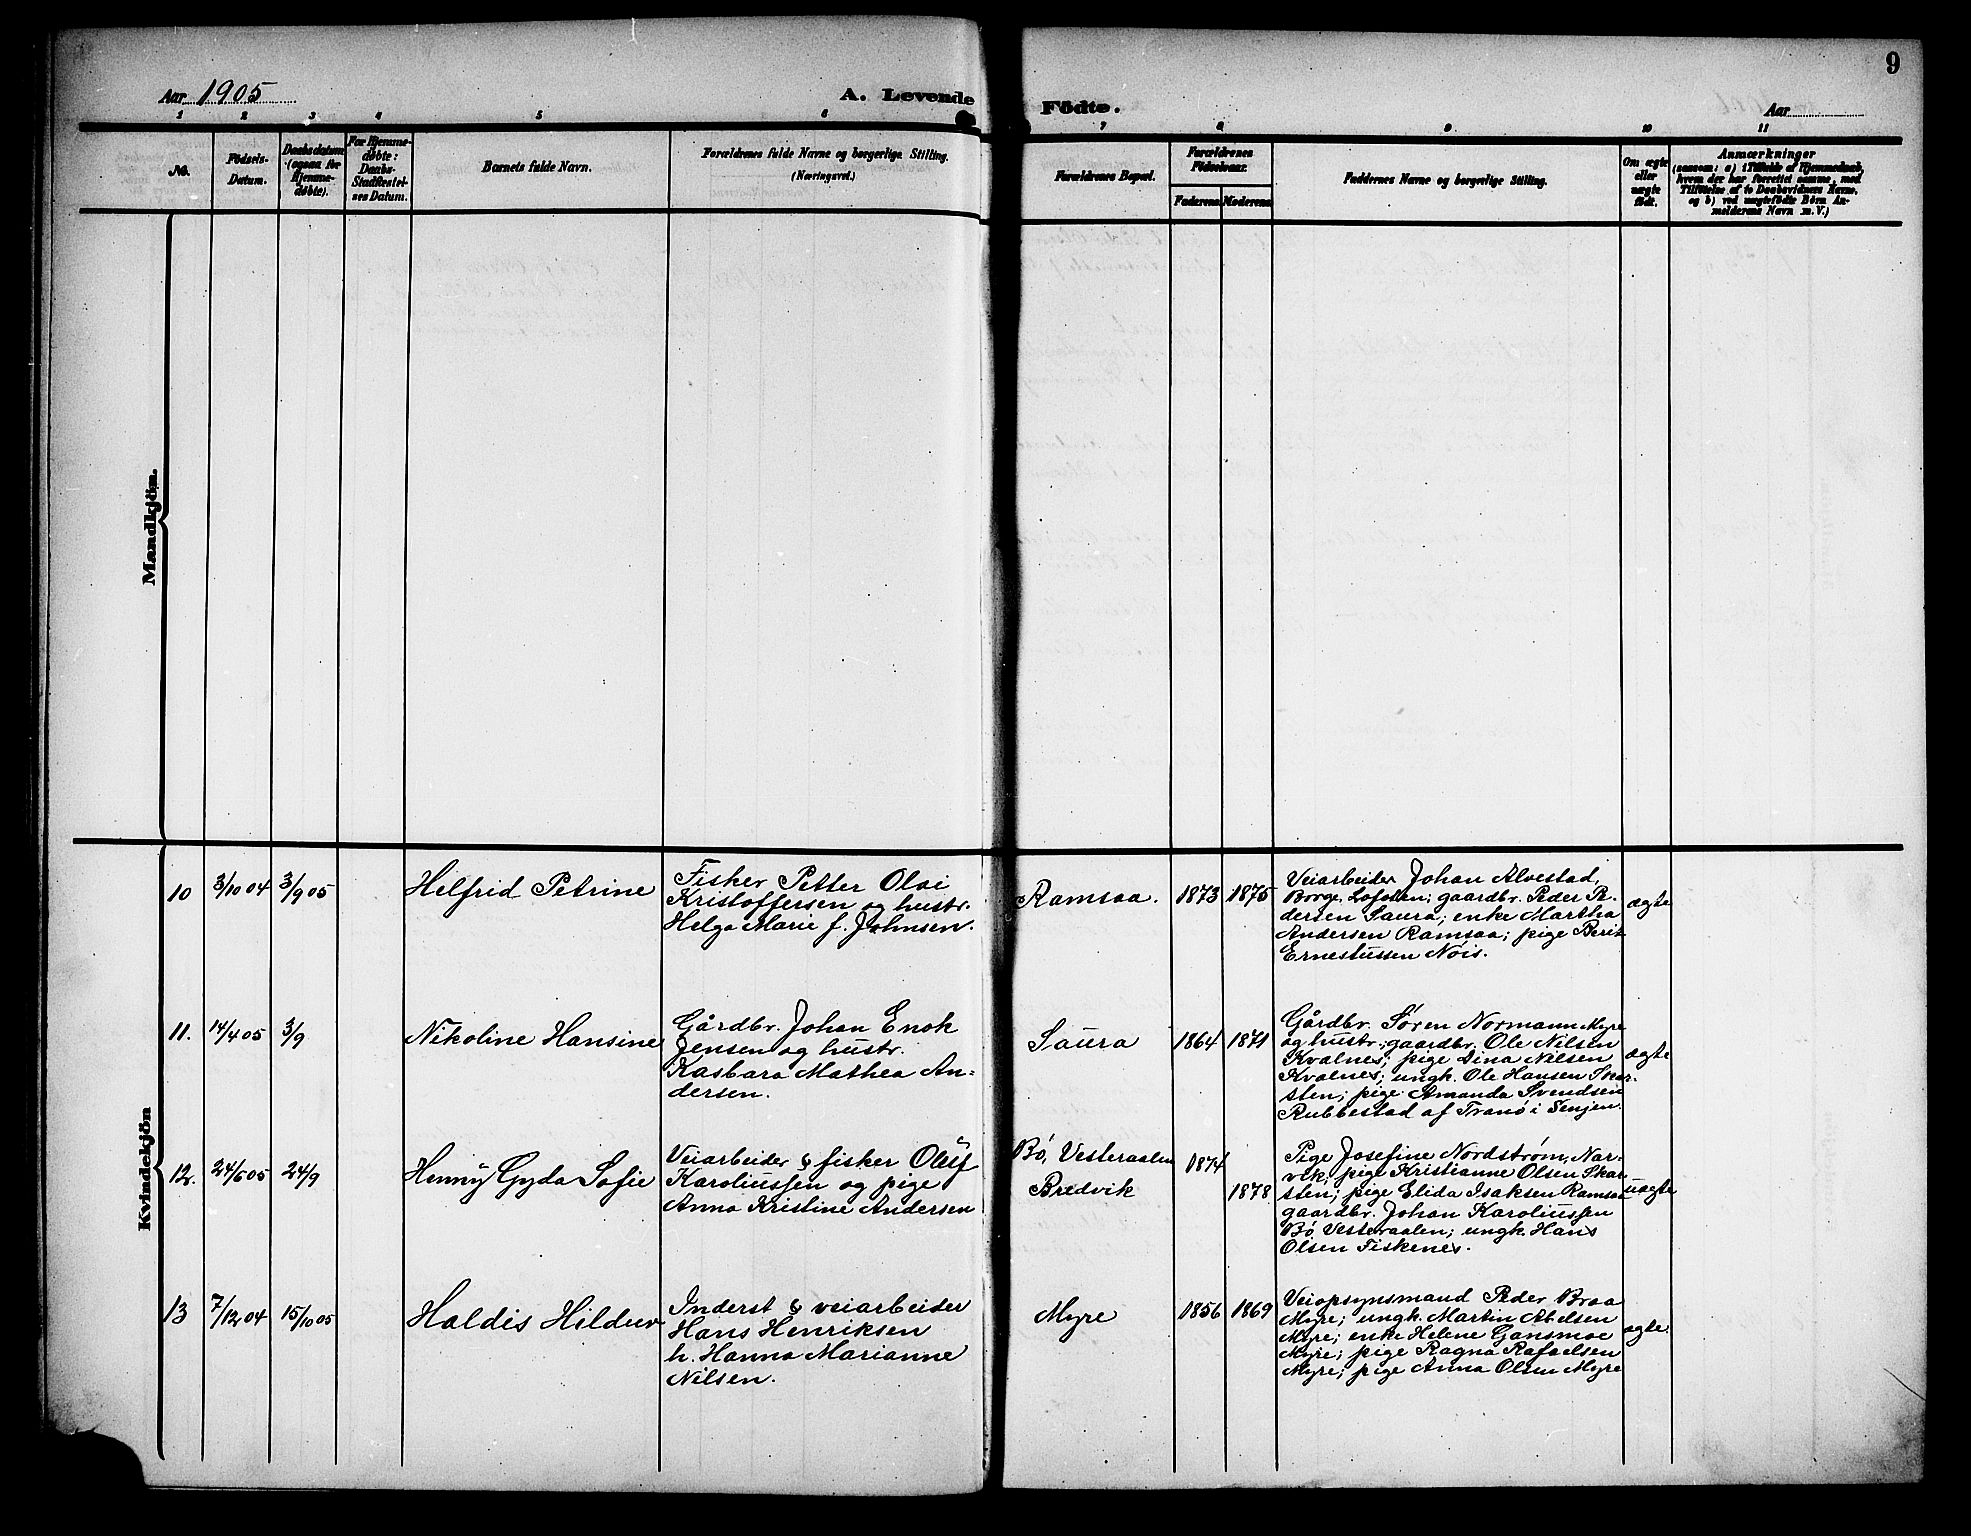 9
Aar 1905
A. Levende
Födte.
Aar
1 2 3 4 5 6 7 8 9 10 11
No.
Födsels-
Datum.
Daabsdatum
(ogsaa for
Hjemme-
døbte).
For Hjemme-
døbte:
Daabs-
Stadfæstel-
ses Datum.
Barnets fulde Navn.
Forældrenes fulde Navne og borgerlige Stilling.
(Næringsvei.)
Forældrenes Bopæl.
Forældrenes
Födselsaar.
Faderens
Moderens
Faddernes Navne og borgerlige Stilling.
Om ægte
eller
uægte
født.
Anmærkninger
(saasom: a) i Tilfælde af Hjemmedaab,
hvem der har forrettet samme, med
Tilföielse af to Daabsvidners Navne,
og b) ved uægtefödte Börn An-
melderens Navn m. V.)
Mandkjön.
Kvindekjön
10
3/10 04
3/9 05
Helfrid Petrine
Fisker Petter Olai
Kristoffersen og hustr.
Helga Marie f. Johnsen.
Ramsaa.
1873
1875
Veiarbeider Johan Alvestad,
Borge, Lofoten; gaardbr. Peder Pe-
dersen Saura; enke Martha
Andersen Ramsaa; pige Berit
Ernestussen Nöis.
ægte
11.
14/4 05
3/9
Nikoline Hansine
Gårdbr. Johan Enok
Jensen og hustr.
Kasbara Mathea An-
dersen.
Saura
1864
1871
Gårdbr. Søren Normann Myre
og hustr.; gaardbr. Ole Nilsen
Kvalnes; pige Dina Nilsen
Kvalnes; ungk. Ole Hansen Skar-
sten; pige Amanda Svendsen
Rubbestad af Tranö i Senjen.
ægte
12.
24/6 05
24/9
Henny Gyda Sofie
Veiarbeider & fisker Oluf
Karoliussen og pige
Anna Kristine Andersen
Bö, Vesteraalen
Bredvik
1874
1878
Pige Josefine Nordstrøm, Nar-
vik; pige Kristianne Olsen Skar-
sten; pige Elida Isaksen Ramsaa
gaardbr. Johan Karoliussen
Bö, Vesteraalen; ungk. Hans
Olsen Fiskenes.
uægte
13
7/12 04
15/10 05
Haldis Hildur
Inderst & veiarbeider
Hans Henriksen
h. Hanna Marianne
Nilsen.
Myre
1856
1869
Veiopsynsmand Peder Braa
Myre; ungk. Martin Abelsen
Myre; enke Helene Gansmoe
Myre; pige Ragna Rafaelsen
Myre; pige Anna Olsen Myre
ægte.